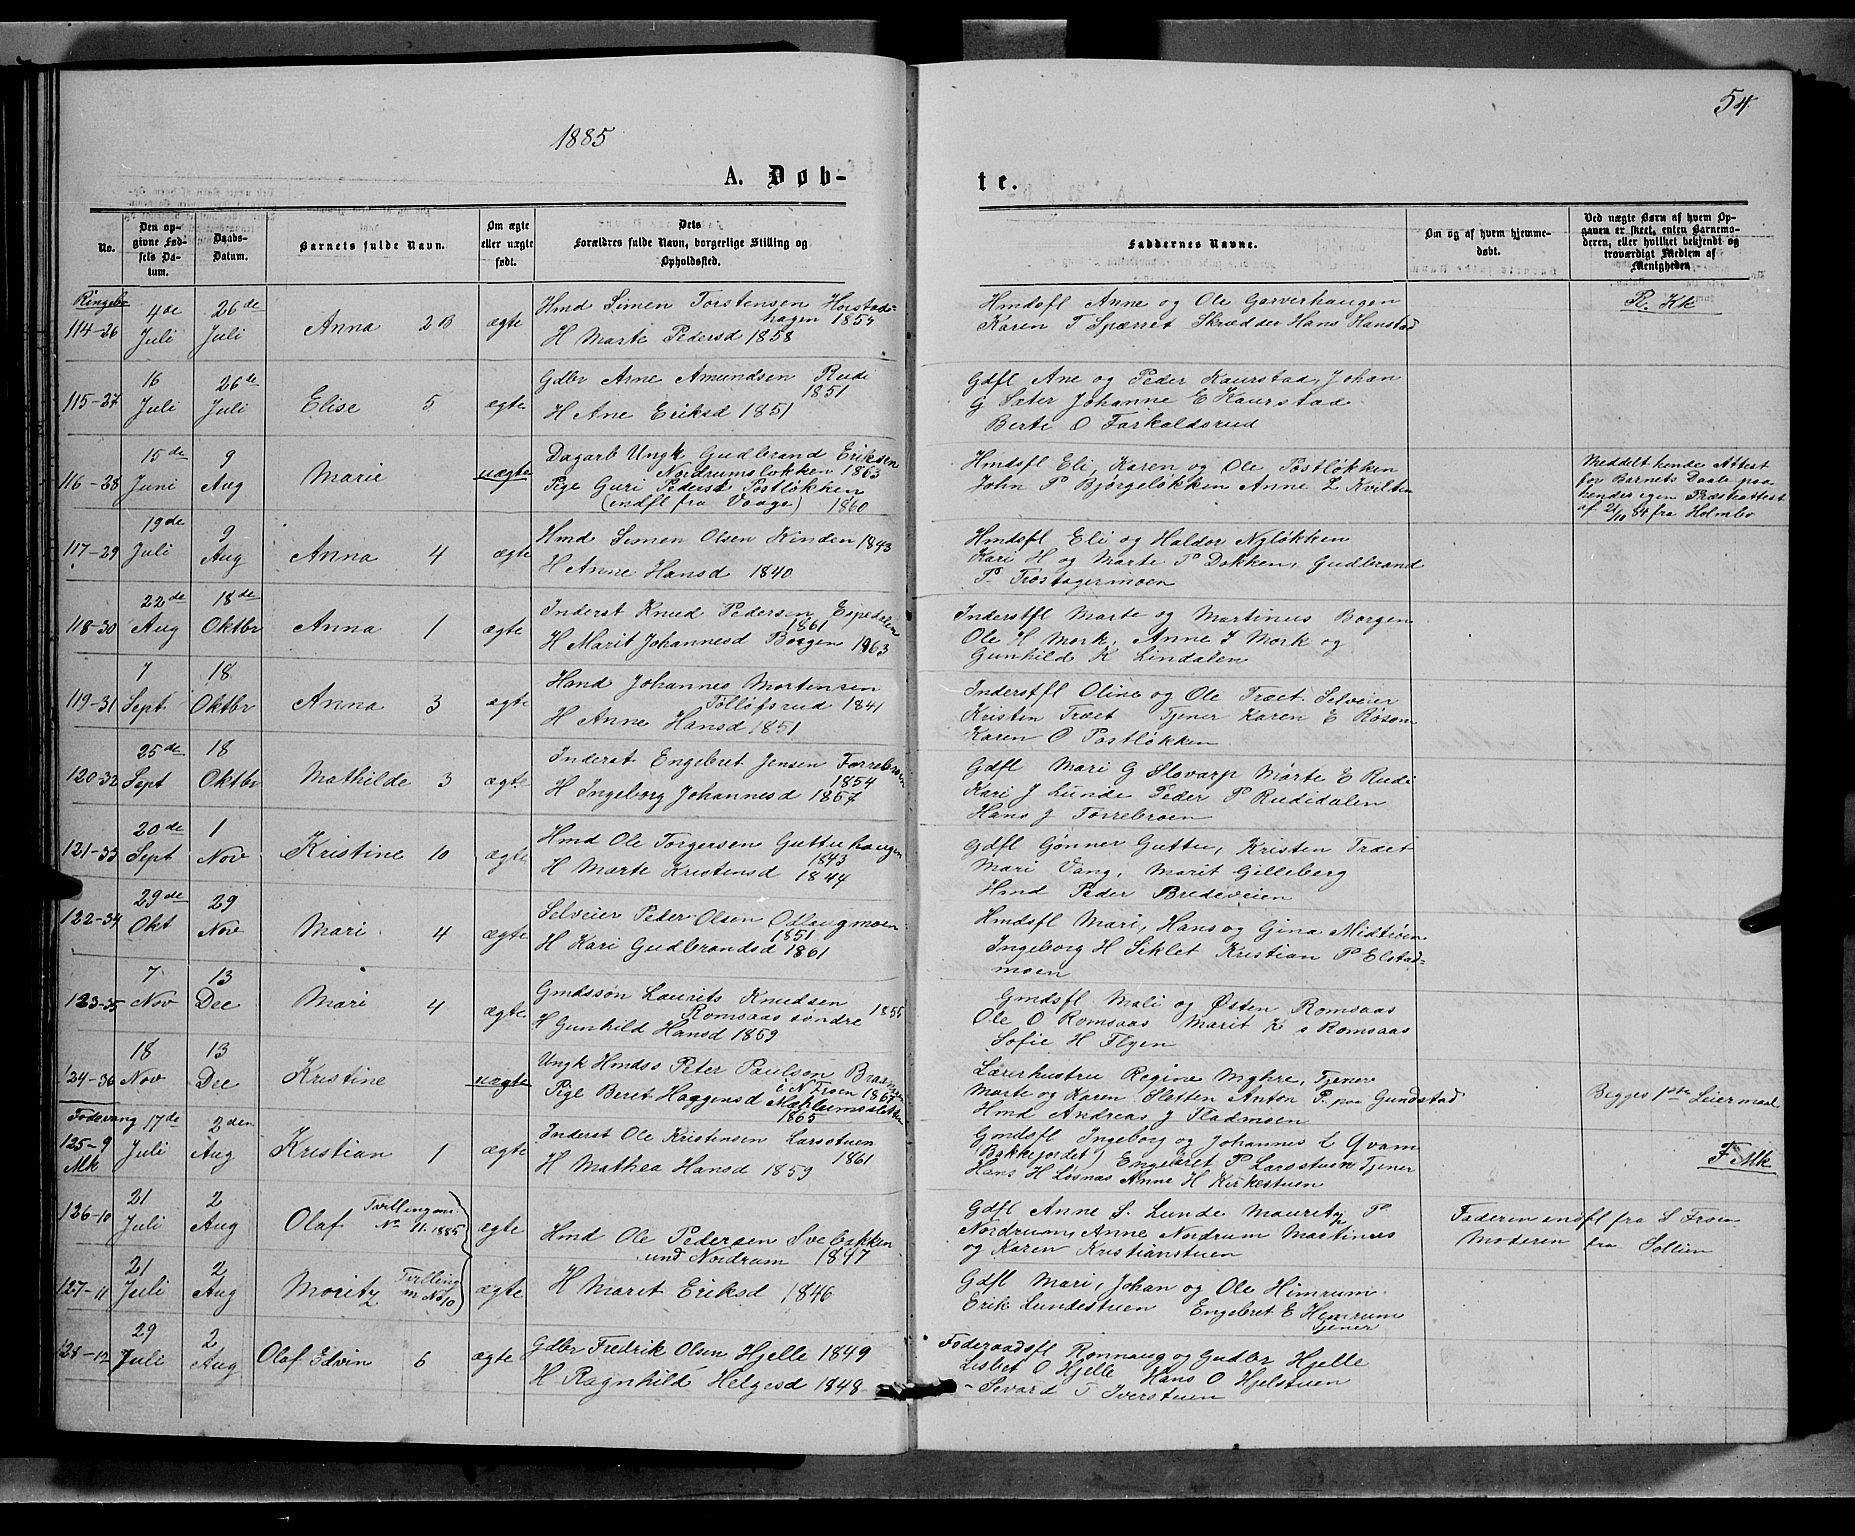 54
1885
A. Døb-
te.
No.
Den op-
givne Fød-
sels Da-
tum.
Daabs-
Datum.
Barnets fulde Navn.
Om ægte
eller uægte
født.
Dets
Forældres fulde Navn, borgerlige Stilling og
Opholdssted.
Faddernes Navne.
Om og af hvem hjemme-
døbt.
Ved uægte Børn af hvem Op-
gaven er skeet, enten Barnemo-
deren, eller hvilket bekjendt og
troværdigt Medlem af
Menigheden
Ringebo
114-26
4de
Juli
26de
Juli
Anna
ægte
Hmd Simen Torstensen
H Marte Pedersd 1858
Hmdsfl Anne og Ole Garverhaugen
Karen T Spærret Skrædder Hans Hanstad
R. Kk
115-27
16
Juli
26de
Juli
Elise 5
ægte
Gdbr Arne Amundsen Rudi
1851
H Ane Eriksd 1851
Gdfl Ane og Peder Kaurstad, Johan
G Sæter Johanne E Kaurstad
Berte O
116-28
15de
Juni
9
Aug
Marie
uægte
Dagarb Ungk Gudbrand Eriksen
Nordrumsløkken 1863
Pige Guri Pedersd Postløkken
(indfl fra Vaage) 1860
Hmdsfl Eli, Karen og Ole Postløkken
John P Bjørgeløkken Anne L Kvilten
Meddelt hende Attest
for Barnets Daab paa
hendes egen Præsteattest
af 21/10 84 fra Holmbo
117-29
19de
Juli
9
Aug
Anna 4
ægte
Hmd Simen Olsen Kinden 1843
H Anne Hansd 1840
Hmdsfl Eli og Haldor Nyløkken
Kari H og Marte P Dokken, Gudbrand
P. Trostagermoen
118-30
22de
Aug
18de
Oktbr
Anna 1
ægte
Inderst Knud Pedersen Espedalen
1861
H Marit Johannesd Borgen 1863
Inderstfl Marte og Martinus Borgen
Ole H Mork, Anne J Mork og
Gunhild K Lindalen
119-31
7
Sept
18
Oktbr
Anna 3
ægte
Hand Johannes Mortensen
Tolløfsrud 1841
H Anne Hansd 1851
Inderstfl Oline og Ole Træet Selveier
Kristen Træet Tjener Karen E Røsom
Karen O Postløkken
120-32
25de
Sept
18
Oktbr
Mathilde 3
ægte
Inderst Engebret Jensen Forrebroen
1854
H Ingeborg Johannesd 1857
Gdfl Mari G Slovarp Marte E Rudi
Kari J Lunde Peder P Rudidalen
Hans J Forrebroen
121-33
20de
Sept
1
Nov
Kristine 10
ægte
Hmd Ole Torgersen Guttuhaugen
1843
H Marte Kristensd 1844
Gdfl Gønner Guttu, Kristen Træet
Mari Vang, Marit Gilleberg
Hmd Peder Bredeveien
122-34
29de
Okt
29
Nov
Mari 4
ægte
Selveier Peder Olsen Odlaugmoen
1851
H Kari Gudbrandsd 1861
Hmdsfl Mari, Hans og Gina Midtrøen
Ingeborg H Siklet Kristian P Elstad-
moen
123-35
7
Nov
13
Dec
Mari 4
ægte
Gmdssøn Laurits Knudsen
Romsaas søndre 1855
H Gunhild Hansd 1859
Gmdsfl Mali og Østen Romsaas
Ole O Romsaas Marit K s Romsaas
Sofie H Flyen
124-36
18
Nov
13
Dec
Kristine
uægte
Ungk Hmdss Peter Paulson
i N Froen
Pige Beret Haagensd
1865
Lærerhustru Regine Myhre, Tjenere
Marte og Karen Sletten Anton P. paa Gundstad
Hmd Andreas J Fladmoen
Begges 1ste Leiermaal
Fodevang
125-9
Mk
17de
Juli
2den
Aug
Kristian 1
ægte
Inderst Ole Kristensen Larsstuen
1861
H Mathea Hansd 1859
Gmdsfl Ingeborg og Johannes L Qvam
Bakkejordet, Engebret P Larsstuen, Tjener
Hans H Losnas Anne H Kirkestuen
F Mk
126-10
21
Juli
2
Aug
Olaf Tvilling m.
No 11. 1885
ægte
Hmd Ole Pedersen Svebakken
und Nordrum 1847
Gdfl Anne S. Lunde Mauritz P
Nordrum, Anne Nordrum Martinus
og Karen Kristianstuen
Faderen indfl fra S Froen
Moderen fra Sollien
127-11
21
Juli
2
Aug
Moritz Tvilling
m No 10
ægte
H Marit Eriksd 1846
Gdfl Mari, Johan og Ole Himrum
Erik Lundestuen Engebret E Himrum
Tjener
128-12
29
Juli
2
Aug
Olaf Edvin 6
ægte
Gdbr Fredrik Olsen Hjelle 1849
H Ragnhild Helgesd 1848
Føderaadsfl Rønnaug og Gudbr Hjelle
Lisbet O Hjelle Hans O Hjelstuen
- Sevard T Iverstuen